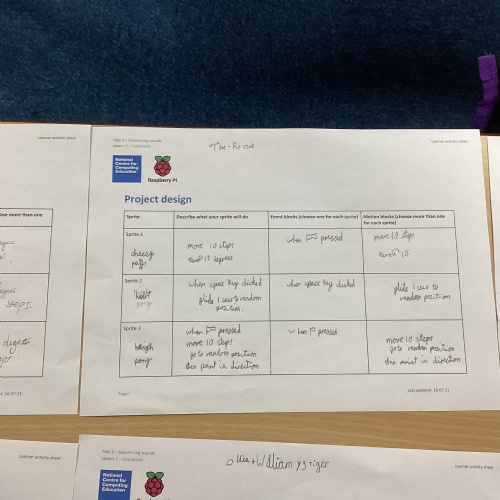 Learner activity sheet
ose more than one
steps.
degrees
d: 16-07-21
Year 3 – Sequencing sounds
Lesson 2 – Sequences
Learner activity sheet
National
Centre for
Computing
Education
Raspberry Pi
Project design
Sprite
Describe what your sprite will do
Event blocks (choose one for each sprite)
Motion blocks (choose more than one for each sprite)
Sprite 1
cheesy
puffs
move 10 steps
turn 15 degrees
when pressed
move 10 steps
turn 15
Sprite 2
when space key clicked
glide 1 sec to random
position
when space key clicked
glide 1 sec to
random position
Sprite 3
pong
when pressed
move 10 steps
go to random position
then point in direction
when pressed
move 10 steps
go to random position
then point in direction
Page 1
Last updated: 16-07-21
Learner activity sheet
Year 3 – Sequencing sounds
Lesson 2 – Sequences
Learner activity sheet
National
Centre for
Computing
Education